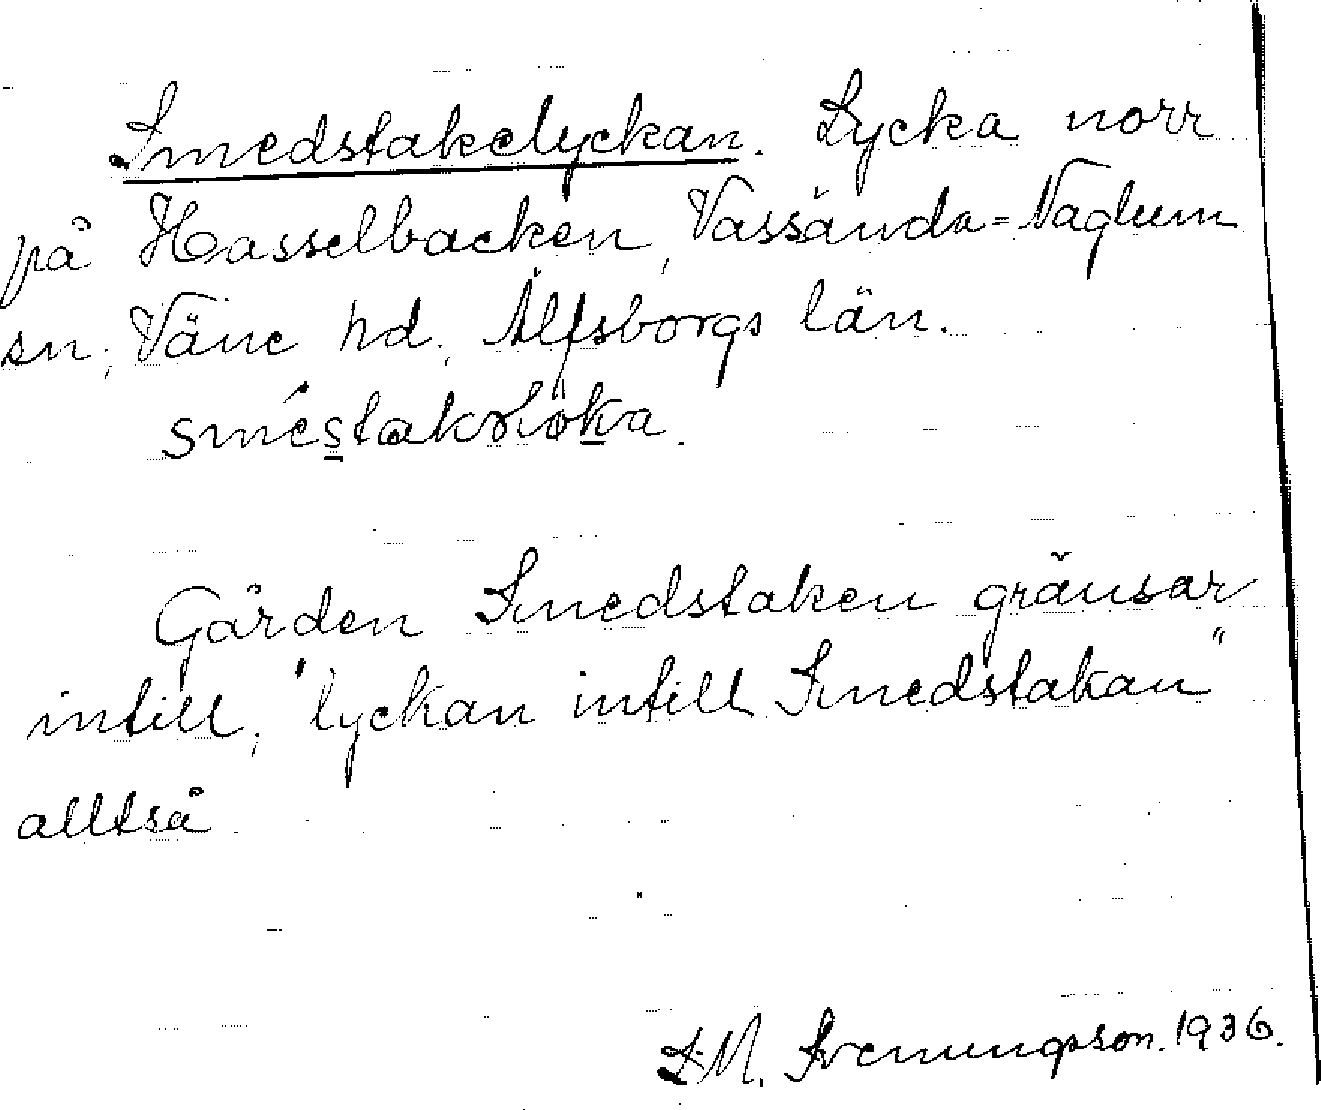 Smedstakelyckan. Lycka norr
på Hasselbacken, Vassända=Naglum
sn, Väne hd, Älfsborgs län.
Gården Smedstaken gränsar
intill, "lyckan intill Smedstakan"
alltså
M. Svenungsson. 1936.